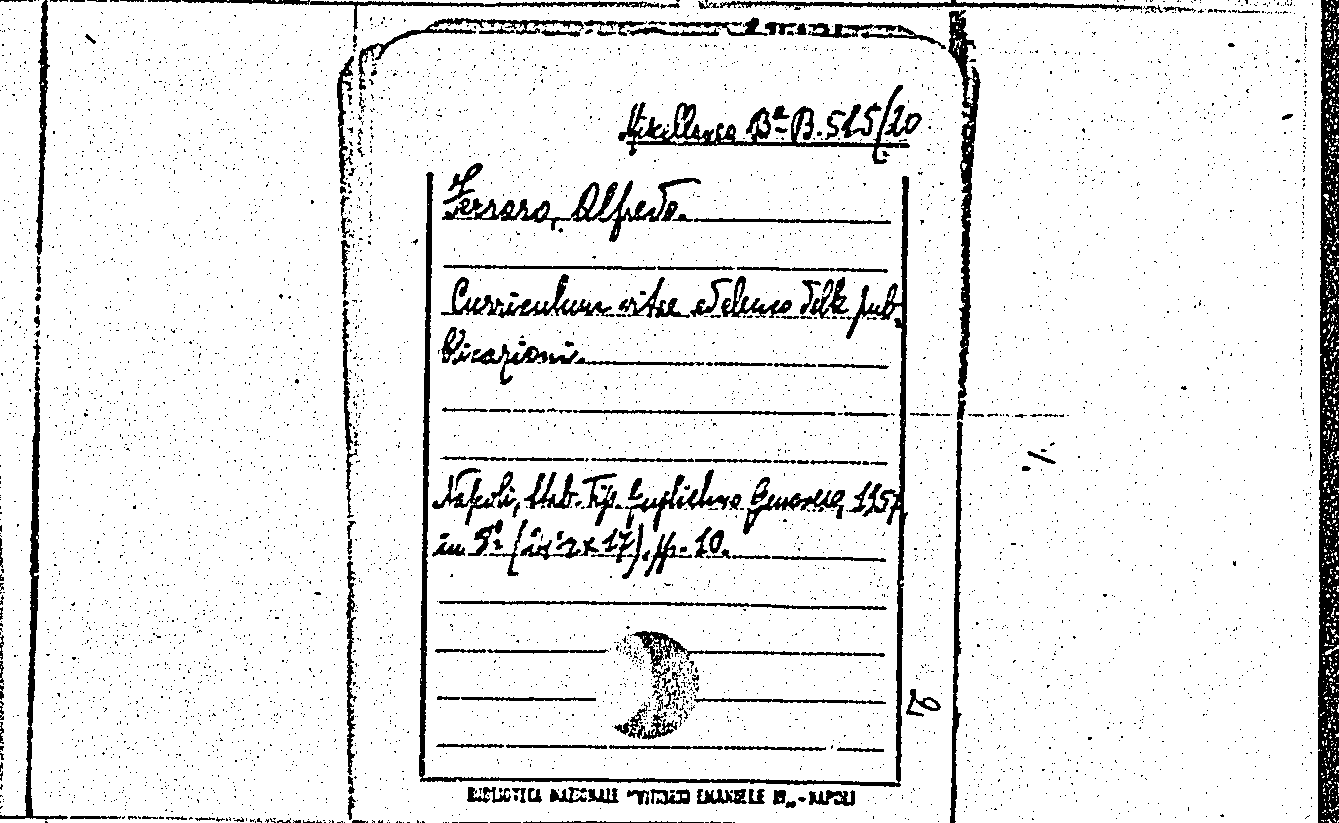 Miscellanea Bª B. 515/20
Ferrara, Alfredo.
Curriculum vitae ed elenco delle pub-
blicazioni.
Napoli, Stab. Tip. Guglielmo Genovese, 1957,
in 8º ( x 17). pp. 10.
BIBLIOTECA NAZIONALE "VITTORIO EMANUELE III„ - NAPOLI